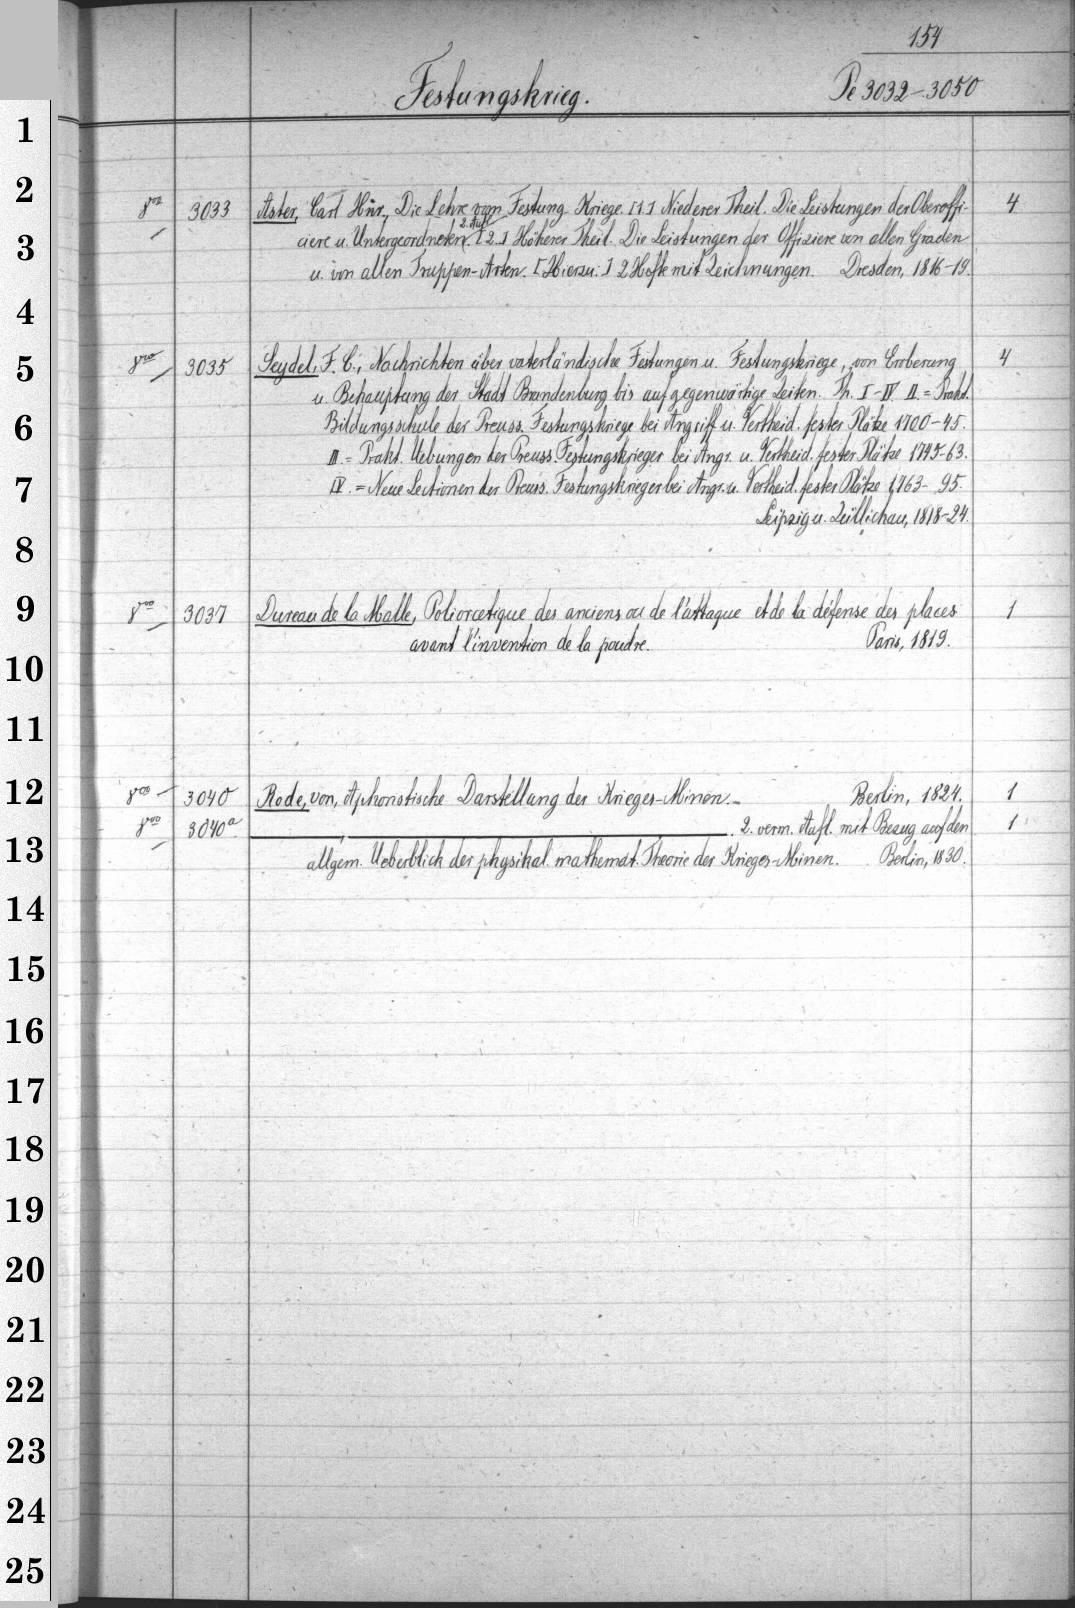 154
Festungskrieg.
Pe 3032-3050
1
2
8vo 3033 Aster, Carl Hnr., Die Lehre vom Festung-Kriege. [1.] Niederer Theil. Die Leistungen der Oberoffi- 4
3
2. Aufl.
ciere u. Untergeordneten. [2.] Höherer Theil. Die Leistungen der Offiziere von allen Graden
u. von allen Truppen-Arten. [Hierzu:] 2 Hefte mit Zeichnungen. Dresden, 1816-19.
4
5
8vo 3035 Seydel, F. C., Nachrichten über vaterländische Festungen u. Festungskriege, von Eroberung 4
u. Behauptung der Stadt Brandenburg bis auf gegenwärtige Zeiten. Th. I-IV. II. = Prakt.
6
Bildungsschule der Preuss. Festungskriege bei Angriff u. Vertheid. fester Plätze 1700-45.
III. = Prakt. Uebungen der Preuss. Festungskrieger bei Angr. u. Vertheid. fester Plätze 1745-63.
7
IV. = Neue Lectionen der Preuss. Festungskrieger bei Angr. u. Vertheid. fester Plätze 1763-95.
Leipzig u. Züllichau, 1818-24.
8
9
8vo 3037 Dureau de la Malle, Poliorcetique des anciens ou de l'attaque et de la défense des places 1
avant l'invention de la poudre. Paris, 1819.
10
11
12
8vo 3040 Rode, von, Aphoristische Darstellung der Krieges-Minen. Berlin, 1824. 1
8vo 3040a 2. verm. Aufl. mit Bezug auf den 1
13
allgem. Ueberblick der physikal. mathemat. Theorie der Krieges-Minen. Berlin, 1830.
14
15
16
17
18
19
20
21
22
23
24
25